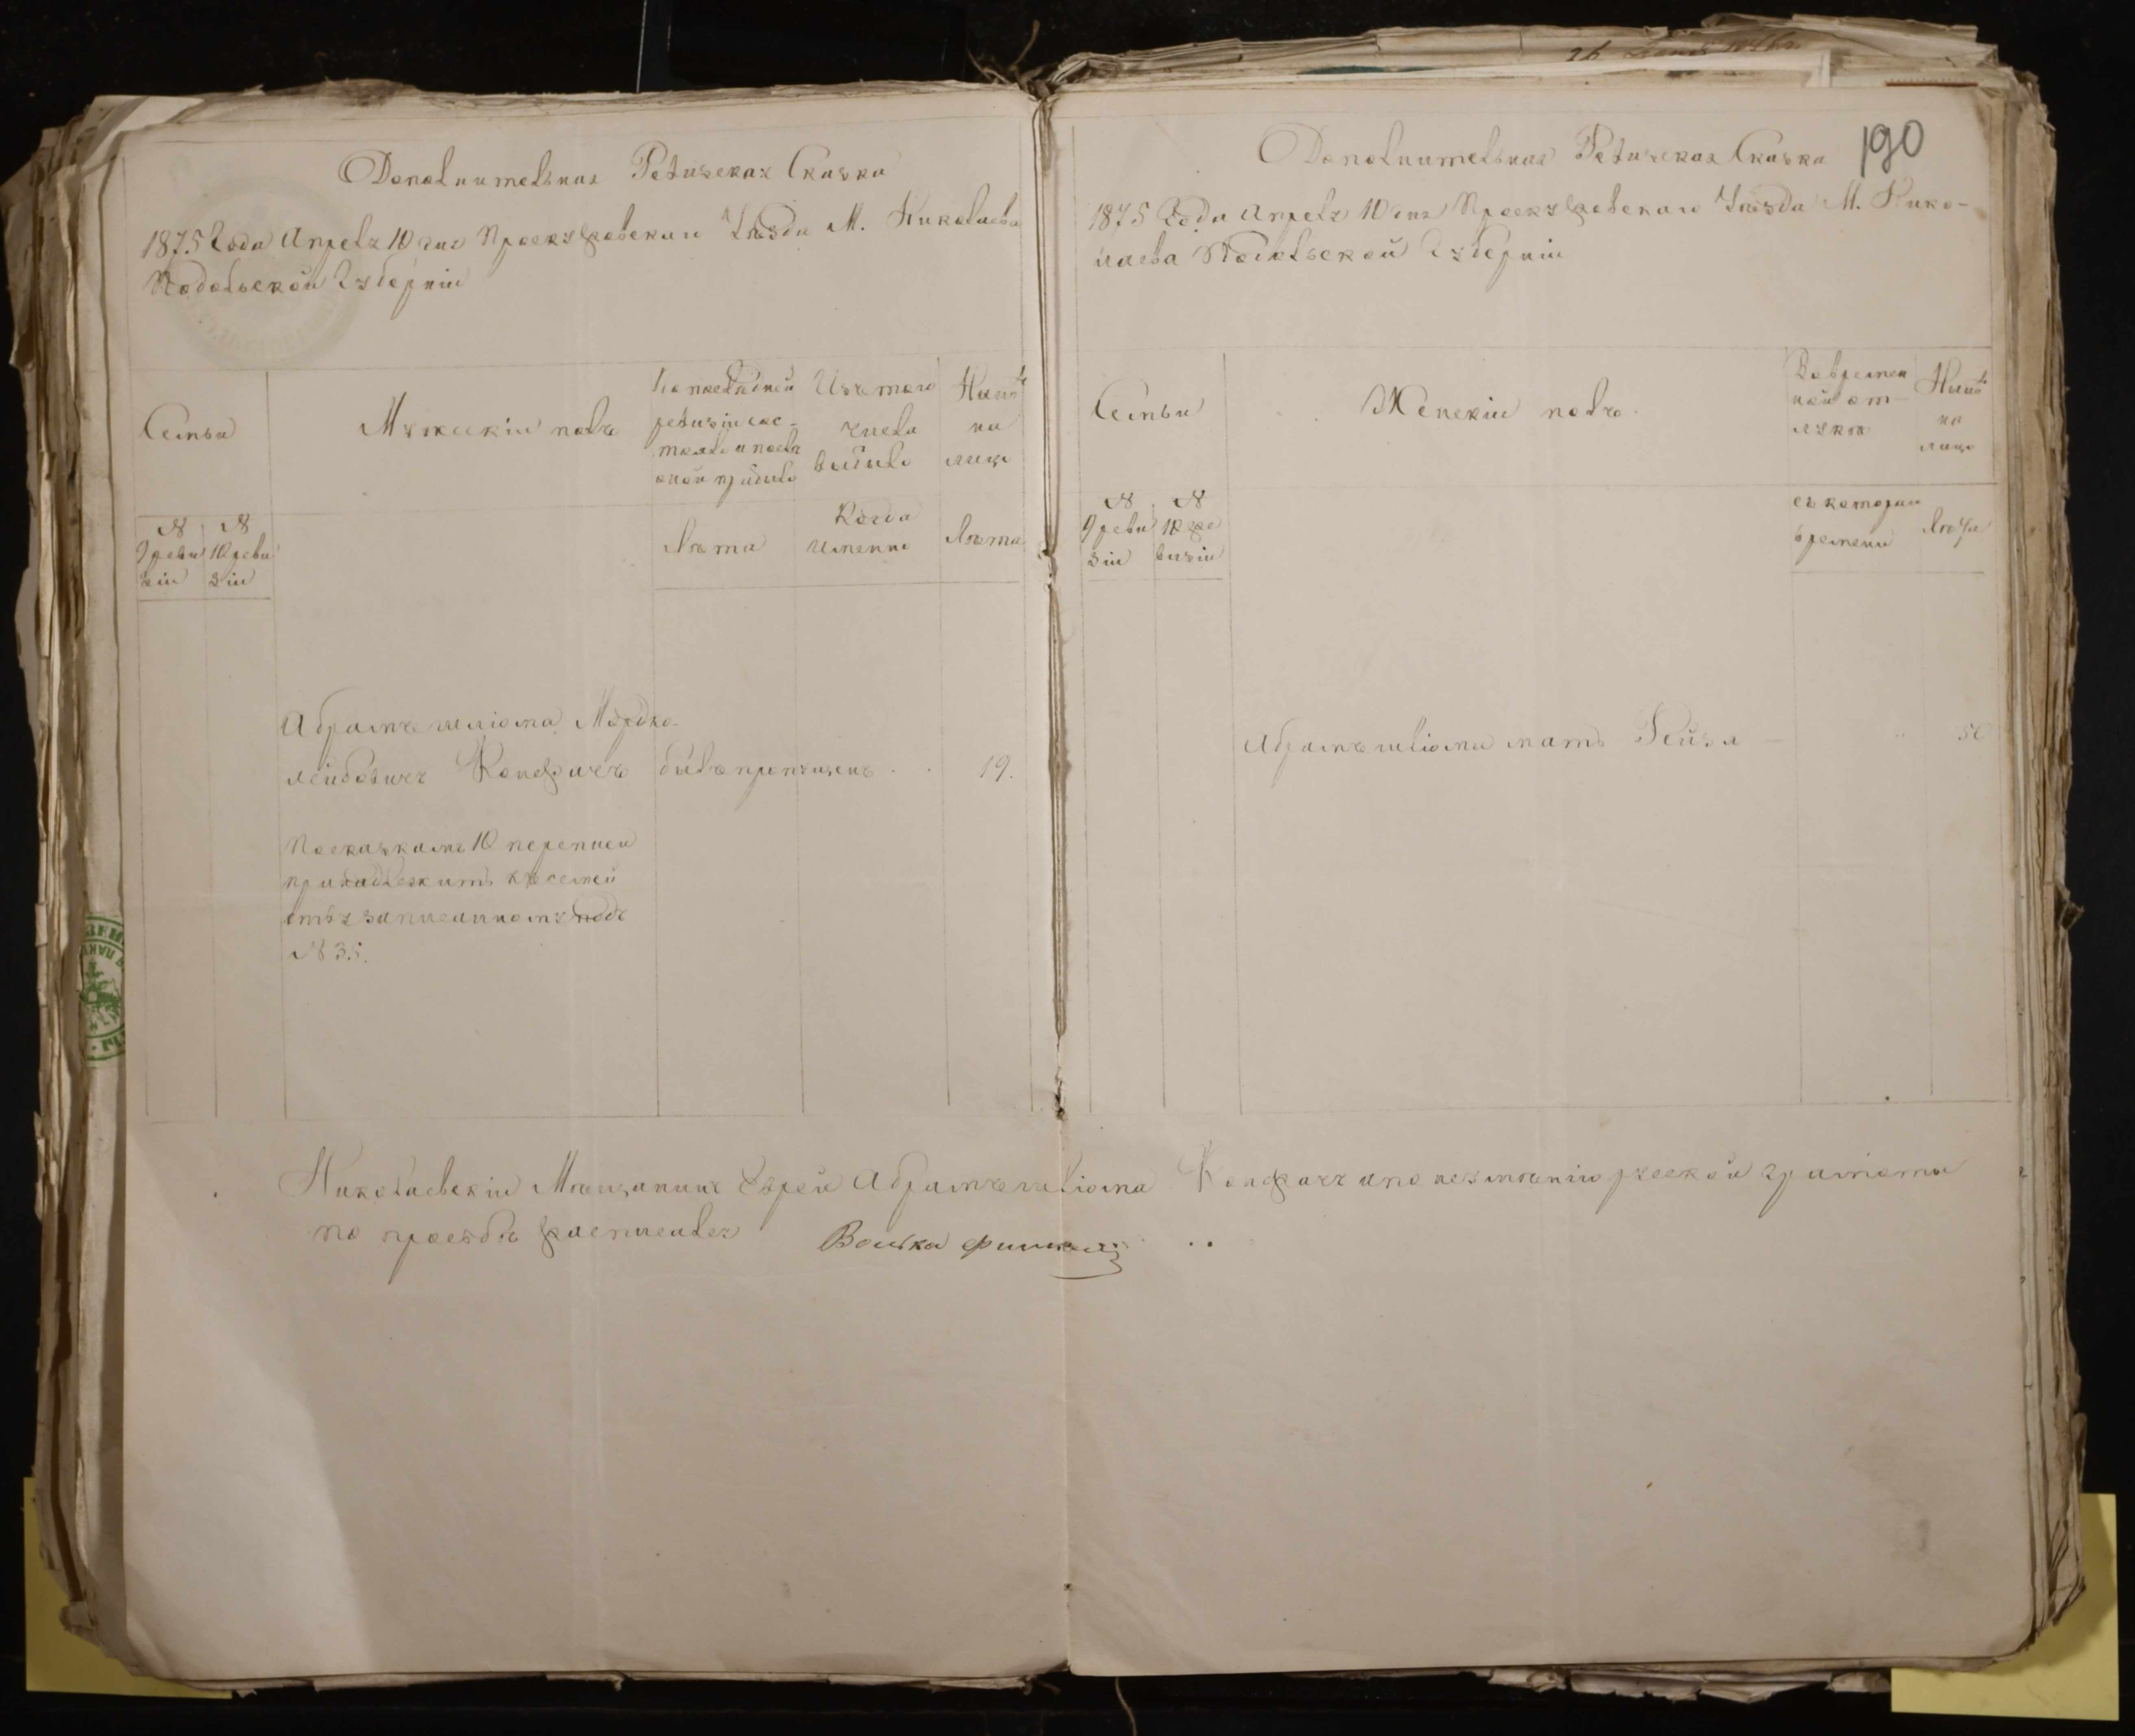 Дополнительная Ревизская Сказка
1875 Года Апреля 10 дня Проскуровскаго Уѣзда М. Николаева
Подольской Губерніи
Семьи
Мужескій полъ
По последней
ревизіи сос-
тояло и послѣ
оной прибыло
Изъ того
числа
выбыло
Нынѣ
на
лицо
№ 9 ревизіи
№ 10 ревизіи
Лѣта
Когда
именно
Лѣта
Абрамъ шліома Мордко-
лейбовичъ
былъ пропущенъ . . 19.
Посказкамъ 10 переписи
принадлежитъ къ семей
ству записанному подъ
№ 35.
190
Дополнительная Ревизская Сказка
1875 Года Апреля 10 дня Проскуровскаго Уѣзда М. Нико-
лаева Подольской Губерніи
Семьи
Женскій полъ.
Вовремен
ной от-
лучкѣ
Нынѣ
на
лицо
№ 9 ревизіи
№ 10 ревизіи
съ котораго
времени
Лѣта
Абрамъ шліомы мать Рейзя — 50
Николаевскій Мѣщанинъ Еврей Абрамъ шліома а по неумѣнію руской грамоты
по прозьбѣ росписался Волька